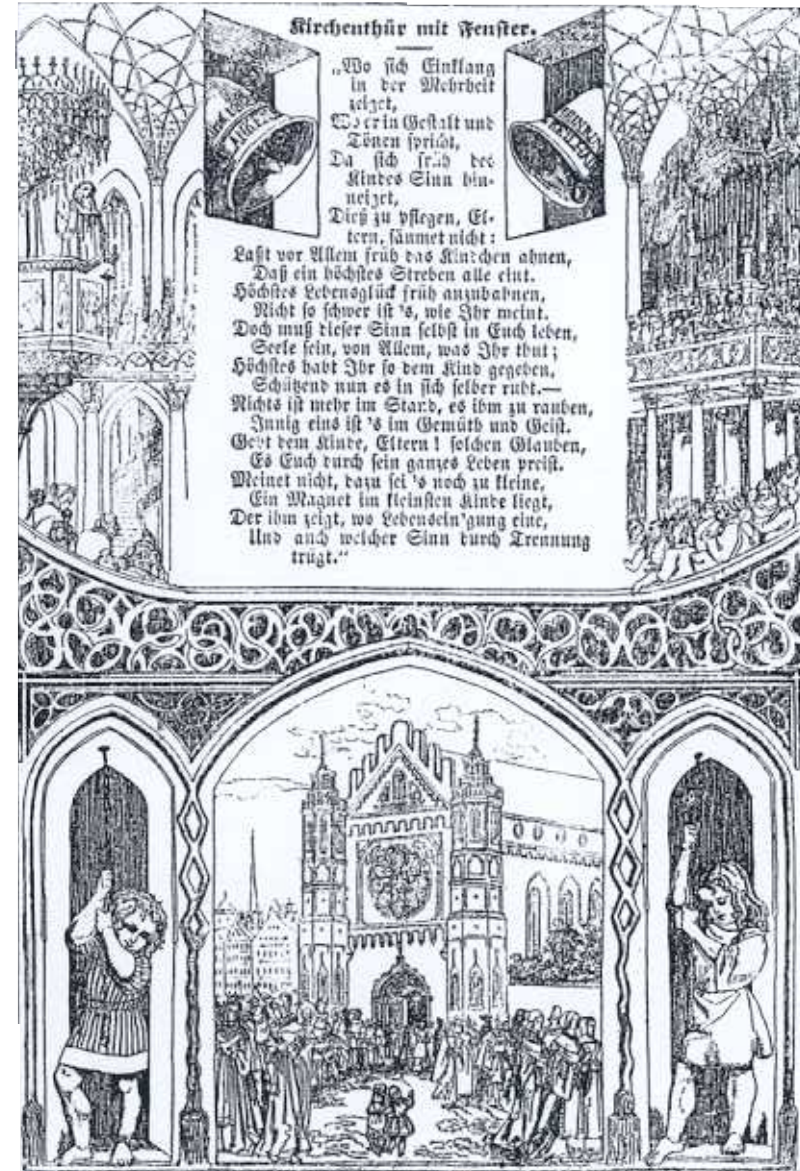 Kirchenthür mit Fenster.
„Wo sich Einklang
in der Mehrheit
zeiget,
Wo er in Gestalt und
Tönen spricht,
Da sich früh des
Kindes Sinn hin-
neiget,
Dieß zu pflegen, El-
tern, säumet nicht:
Laßt vor Allem früh das Kindchen ahnen,
Daß ein höchstes Streben alle eint.
Höchstes Lebensglück früh anzubahnen,
Nicht so schwer ist 's, wie Ihr meint.
Doch muß dieser Sinn selbst in Euch leben,
Seele sein, von Allem, was Ihr thut;
Höchstes habt Ihr so dem Kind gegeben,
Schützend nun es in sich selber ruht.—
Nichts ist mehr im Stand, es ihm zu rauben,
Innig eins ist 's im Gemüth und Geist.
Gebt dem Kinde, Eltern! solchen Glauben,
Es Euch durch sein ganzes Leben preist.
Meinet nicht, dazu sei 's noch zu kleine,
Ein Magnet im kleinsten Kinde liegt,
Der ihm zeigt, wo Lebensein'gung eine,
Und auch welcher Sinn durch Trennung
trügt.“